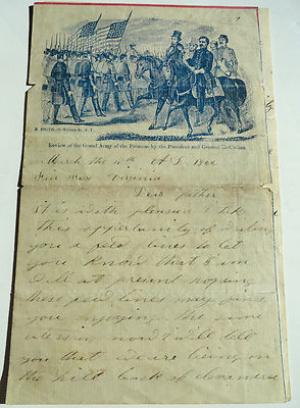 Review of the Grand Army of the Potomac by the President and General McClellan.
March the 4th A D 1862
Virginia
Dear father
it is with pleasure I take
this oppertunity of
you a few lines to let
you know that I am
well at present hoping
these few lines may find
you enjoying the same
now I will tell
you that we are lieing on
the hill back of